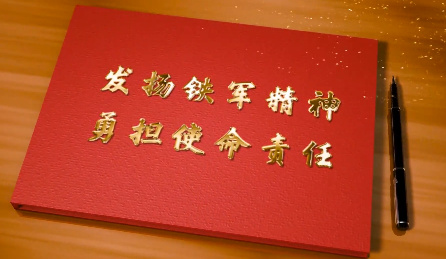 发扬铁军精神
勇担使命责任